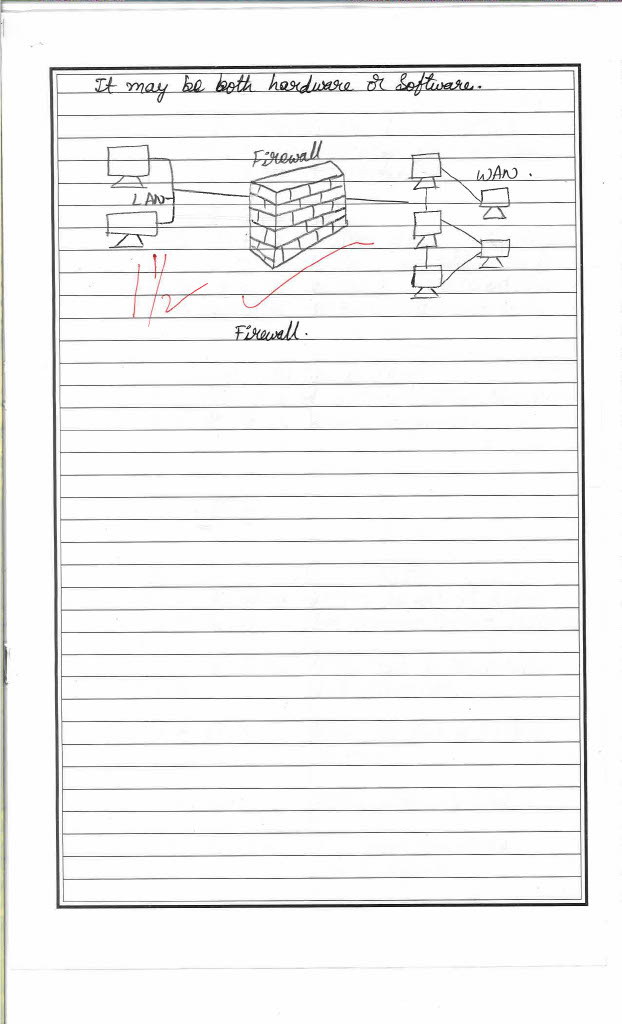 It may be both hardware or Software.
Firewall
WAN.
LAN
1 1/2
Firewall.